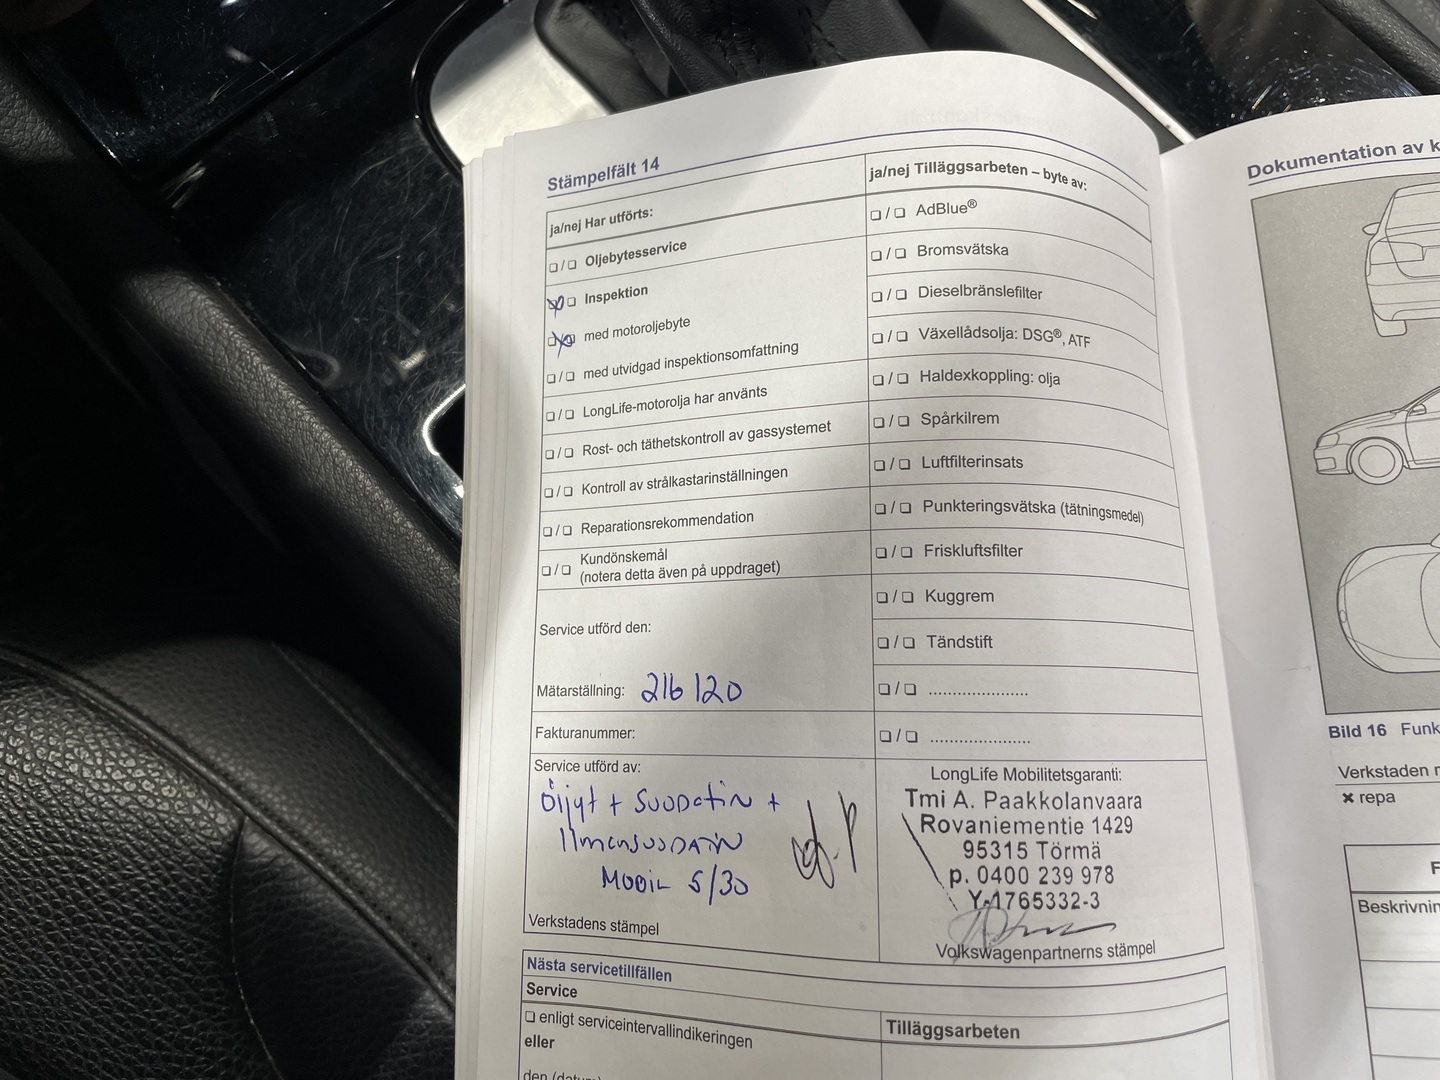 Stämpelfält 14
ja/nej Har utförts:
❑/❑ Oljebytesservice
❑ Inspektion
med motoroljebyte
❑/❑ med utvidgad inspektionsomfattning
❑/❑ LongLife-motorolja har använts
❑/❑ Rost- och täthetskontroll av gassystemet
❑/❑ Kontroll av strålkastarinställningen
❑/❑ Reparationsrekommendation
❑/❑ Kundönskemål
(notera detta även på uppdraget)
Service utförd den:
Mätarställning: 216120
Fakturanummer:
Service utförd av:
Öljyt + suodatin +
Ilmansuodatin
Mobil 5/30
Verkstadens stämpel
ja/nej Tilläggsarbeten – byte av:
❑/❑ AdBlue®
❑/❑ Bromsvätska
❑/❑ Dieselbränslefilter
❑/❑ Växellådsolja: DSG®, ATF
❑/❑ Haldexkoppling: olja
❑/❑ Spårkilrem
❑/❑ Luftfilterinsats
❑/❑ Punkteringsvätska (tätningsmedel)
❑/❑ Friskluftsfilter
❑/❑ Kuggrem
❑/❑ Tändstift
❑/❑ .....................
❑/❑ .....................
LongLife Mobilitetsgaranti:
Tmi A. Paakkolanvaara
Rovaniementie 1429
95315 Törmä
p. 0400 239 978
Y-1765332-3
Volkswagenpartnerns stämpel
Nästa servicetillfällen
Service
❑ enligt serviceintervallindikeringen
eller
den (datum)
Tilläggsarbeten
Dokumentation av k
Bild 16 Funk
Verkstaden
✖ repa
F
Beskrivnin